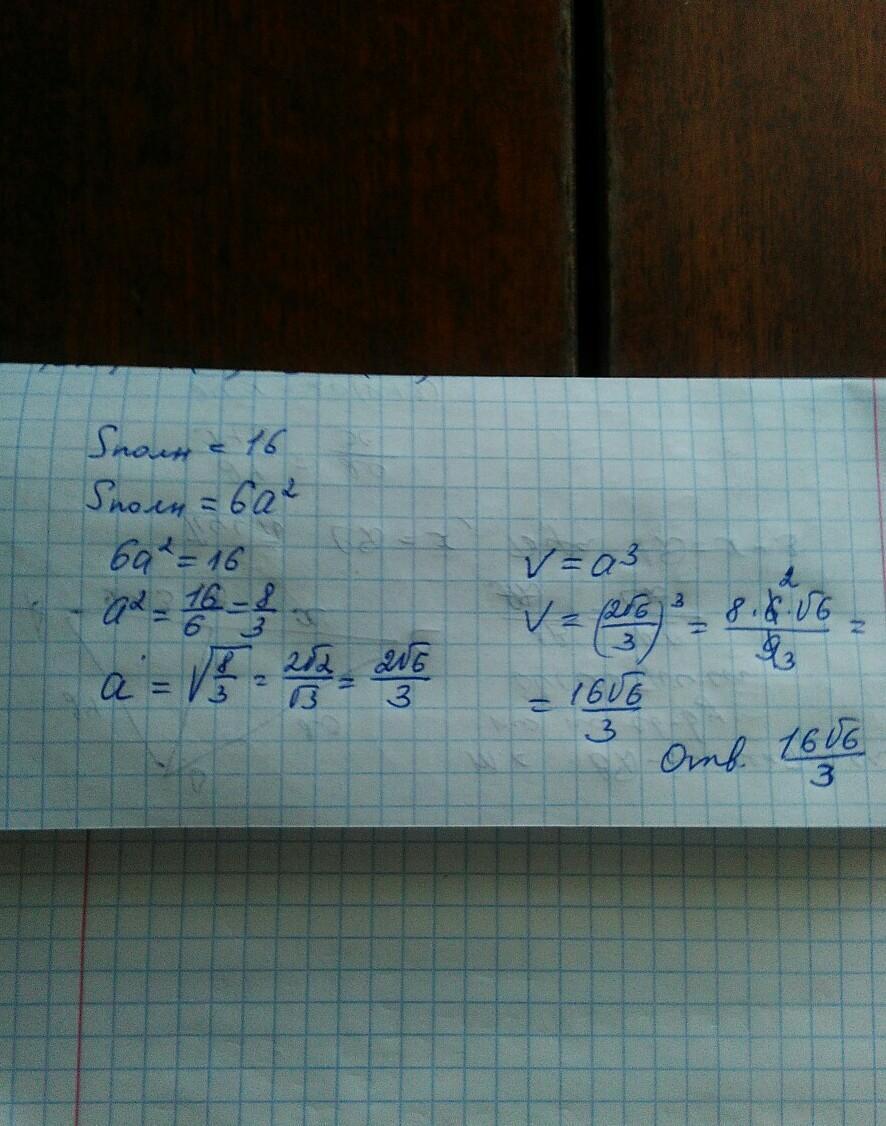 Sполн = 16
Sполн = 6a²
6a² = 16
a² = 16/6 = 8/3
a = √(8/3) = 2√2/√3 = 2√6/3
V = a³
V = (2√6/3)³ = 8·6·√6/9 = 2 3
= 16√6/3
Отв. 16√6/3